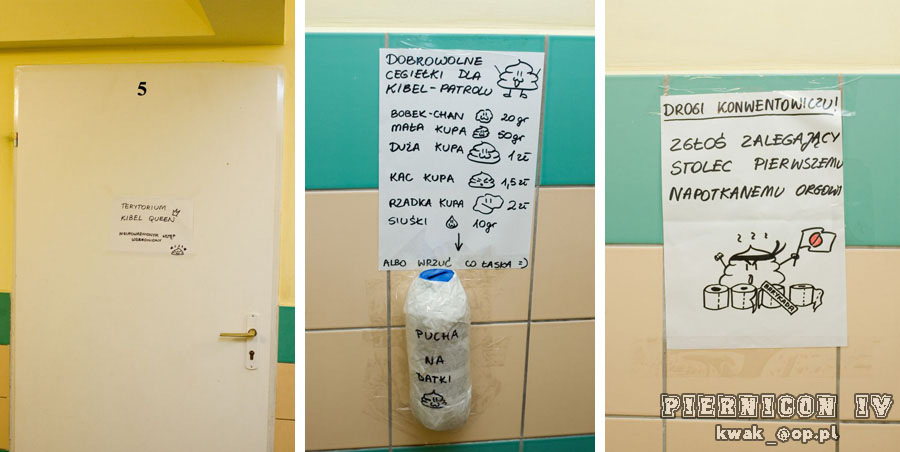 5
TERYTORIUM
KIBEL QUEEN
NIEUPOWAŻNIONYM WSTĘP
WZBRONIONY
DOBROWOLNE
CEGIEŁKI DLA
KIBEL-PATROLU
BOBEK-CHAN 20gr
MAŁA KUPA 50gr
DUŻA KUPA 1 zł
KAC KUPA 1,5 zł
RZADKA KUPA 2 zł
SIUŚKI 10gr
ALBO WRZUĆ CO ŁASKA =)
PUCHA
NA
DATKI
DROGI KONWENTOWICZU!
ZGŁOŚ ZALEGAJĄCY
STOLEC PIERWSZEMU
NAPOTKANEMU ORGOWI
BARYKADA
PIERNICON IV
kwak_@op.pl